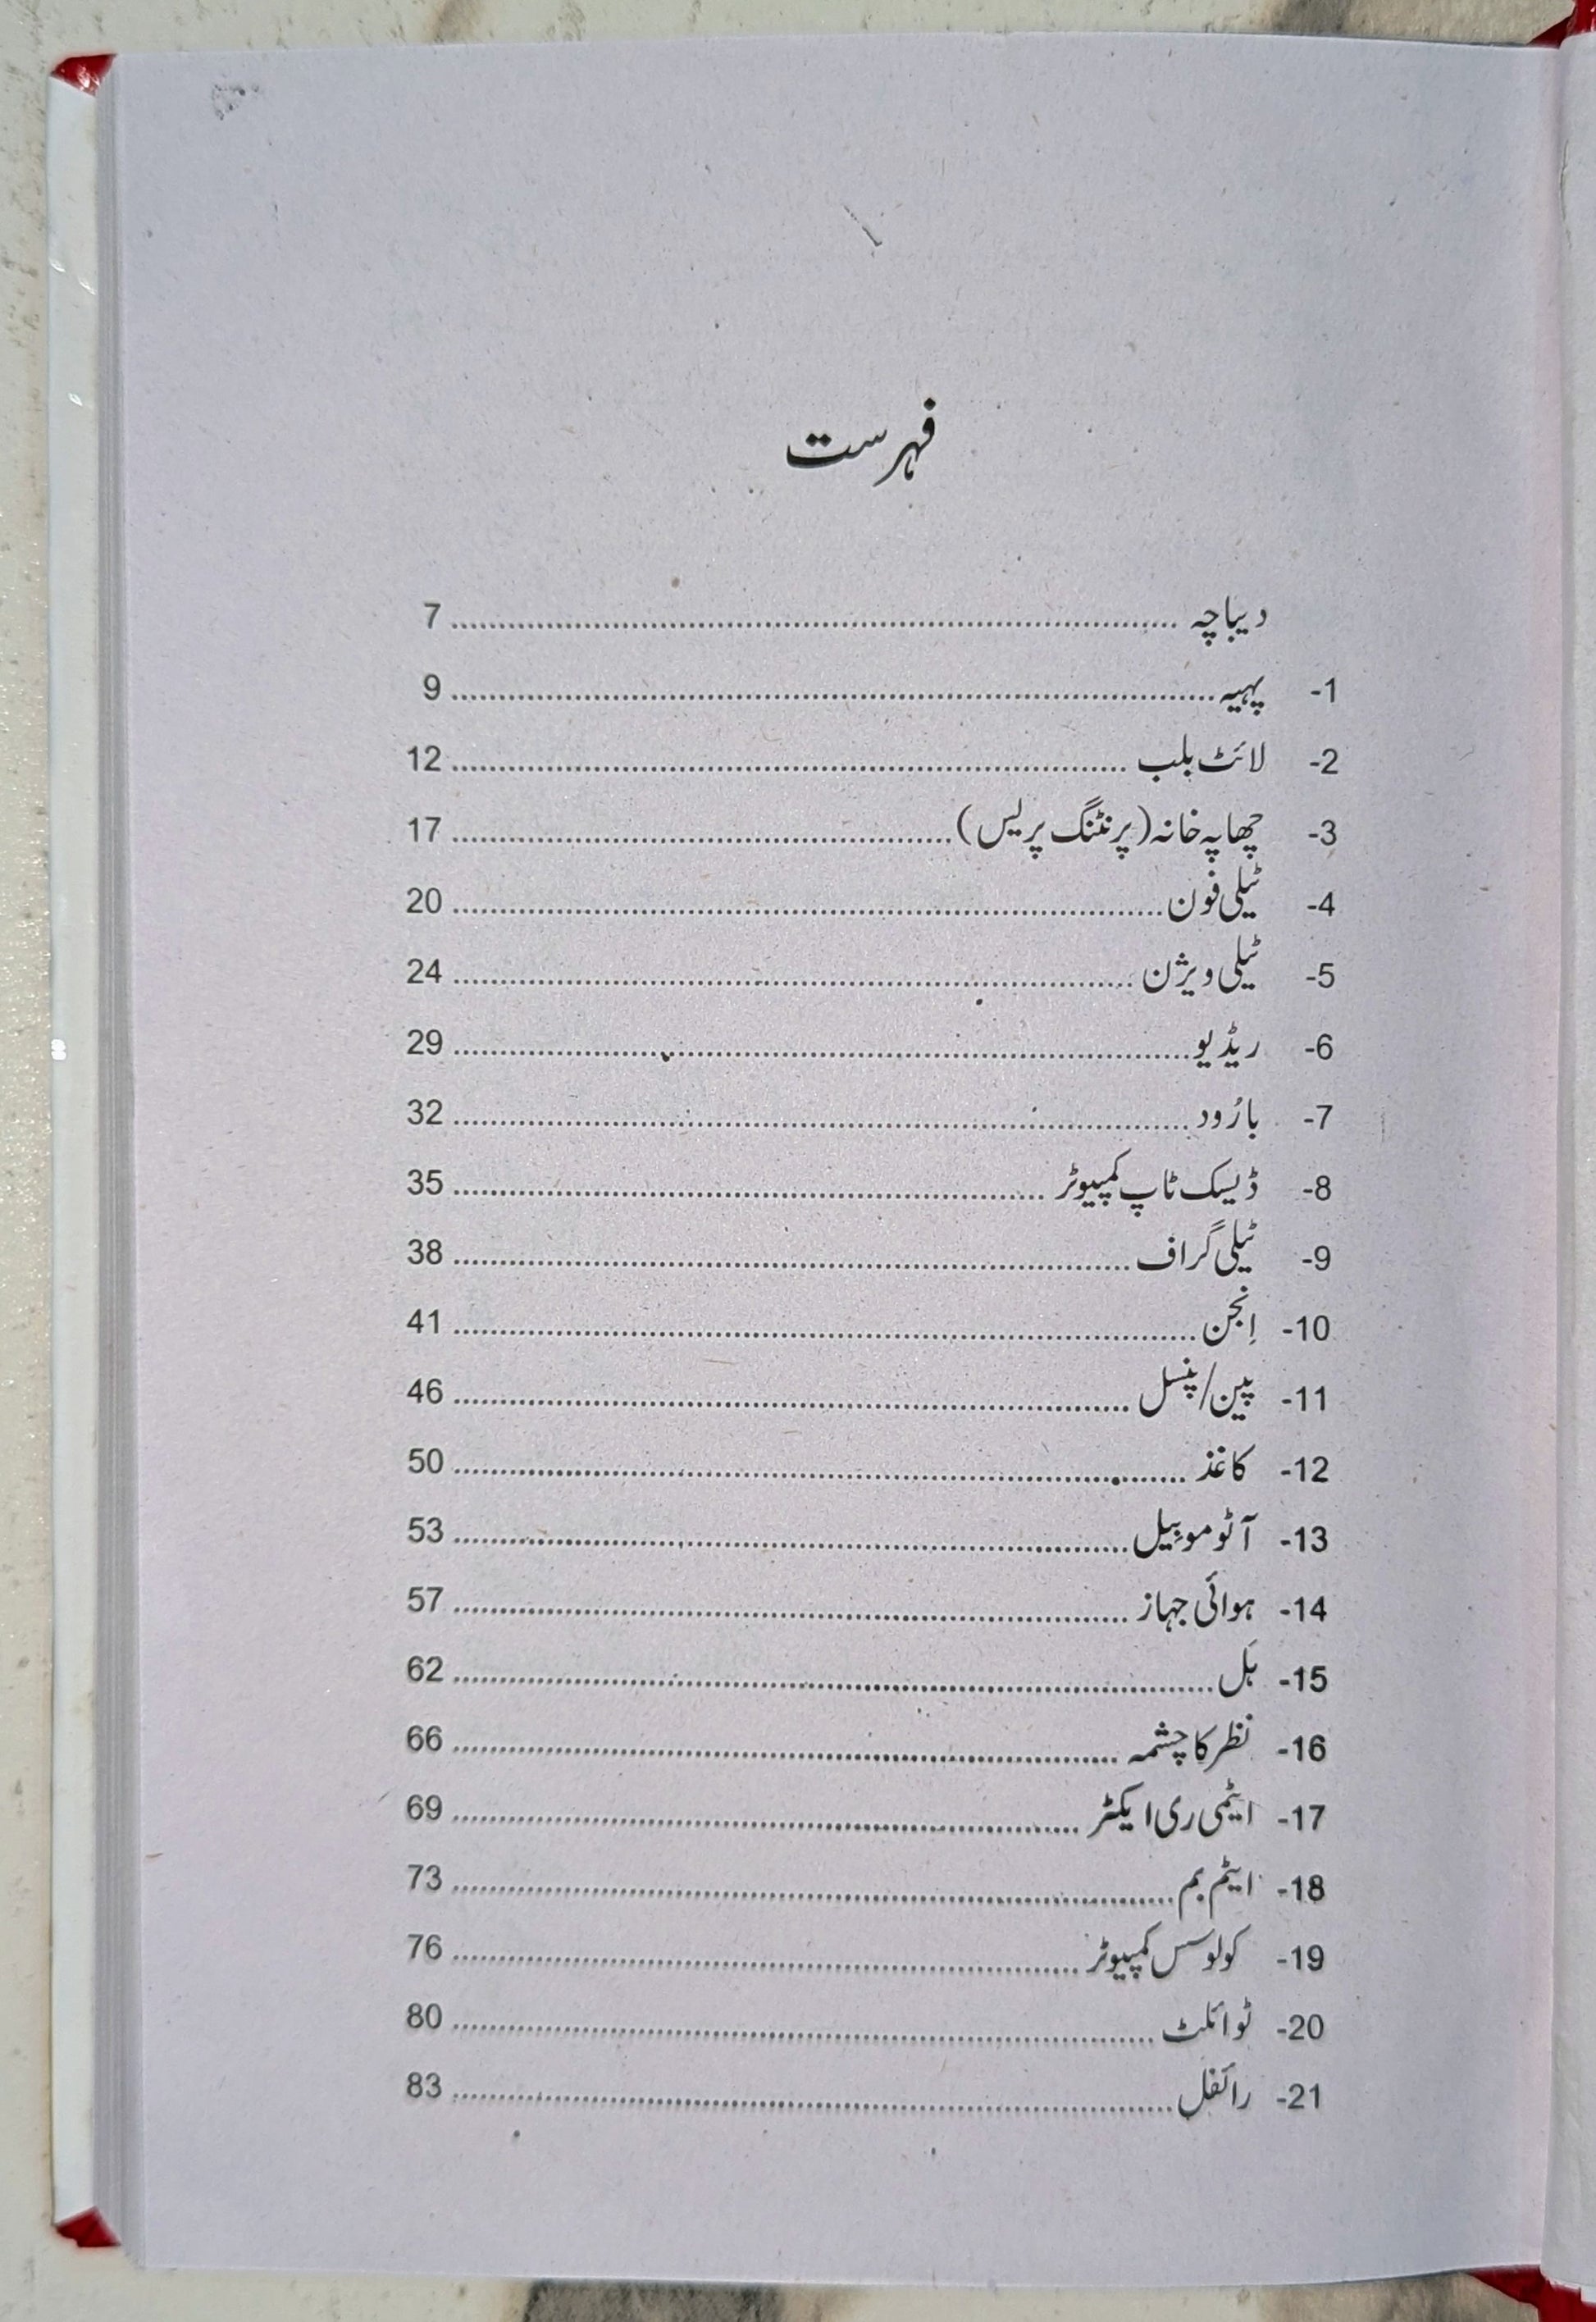 فہرست
دیباچہ ........ 7
1- پہیہ ........ 9
2- لائٹ بلب ........ 12
3- چھاپہ خانہ (پرنٹنگ پریس) ........ 17
4- ٹیلی فون ........ 20
5- ٹیلی ویژن ........ 24
6- ریڈیو ........ 29
7- بارُود ........ 32
8- ڈیسک ٹاپ کمپیوٹر ........ 35
9- ٹیلی گراف ........ 38
10- اِنجن ........ 41
11- پین/پنسل ........ 46
12- کاغذ ........ 50
13- آٹوموبِیل ........ 53
14- ہوائی جہاز ........ 57
15- ہَل ........ 62
16- نظر کا چشمہ ........ 66
17- ایٹمی ری ایکٹر ........ 69
18- ایٹم بم ........ 73
19- کولوسس کمپیوٹر ........ 76
20- ٹوائلٹ ........ 80
21- رائفل ........ 83